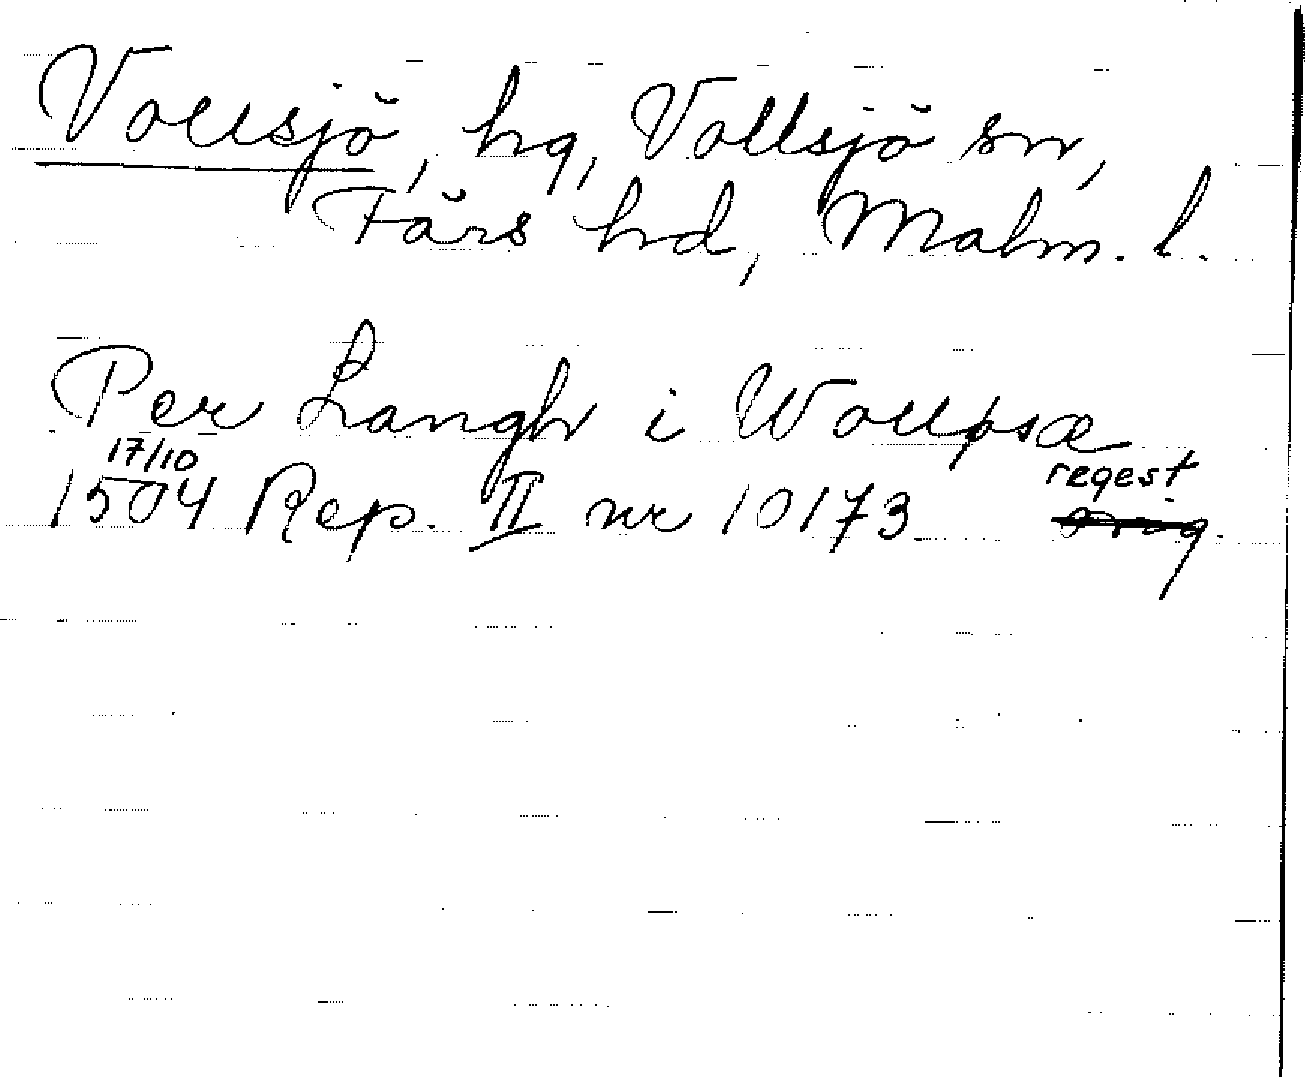 Vollsjö, hg, Vollsjö sn,
Färs hd, Malm. l.
Per Langh i Wollpsæ
17/10
1504 Rep. II nr 10173 regest